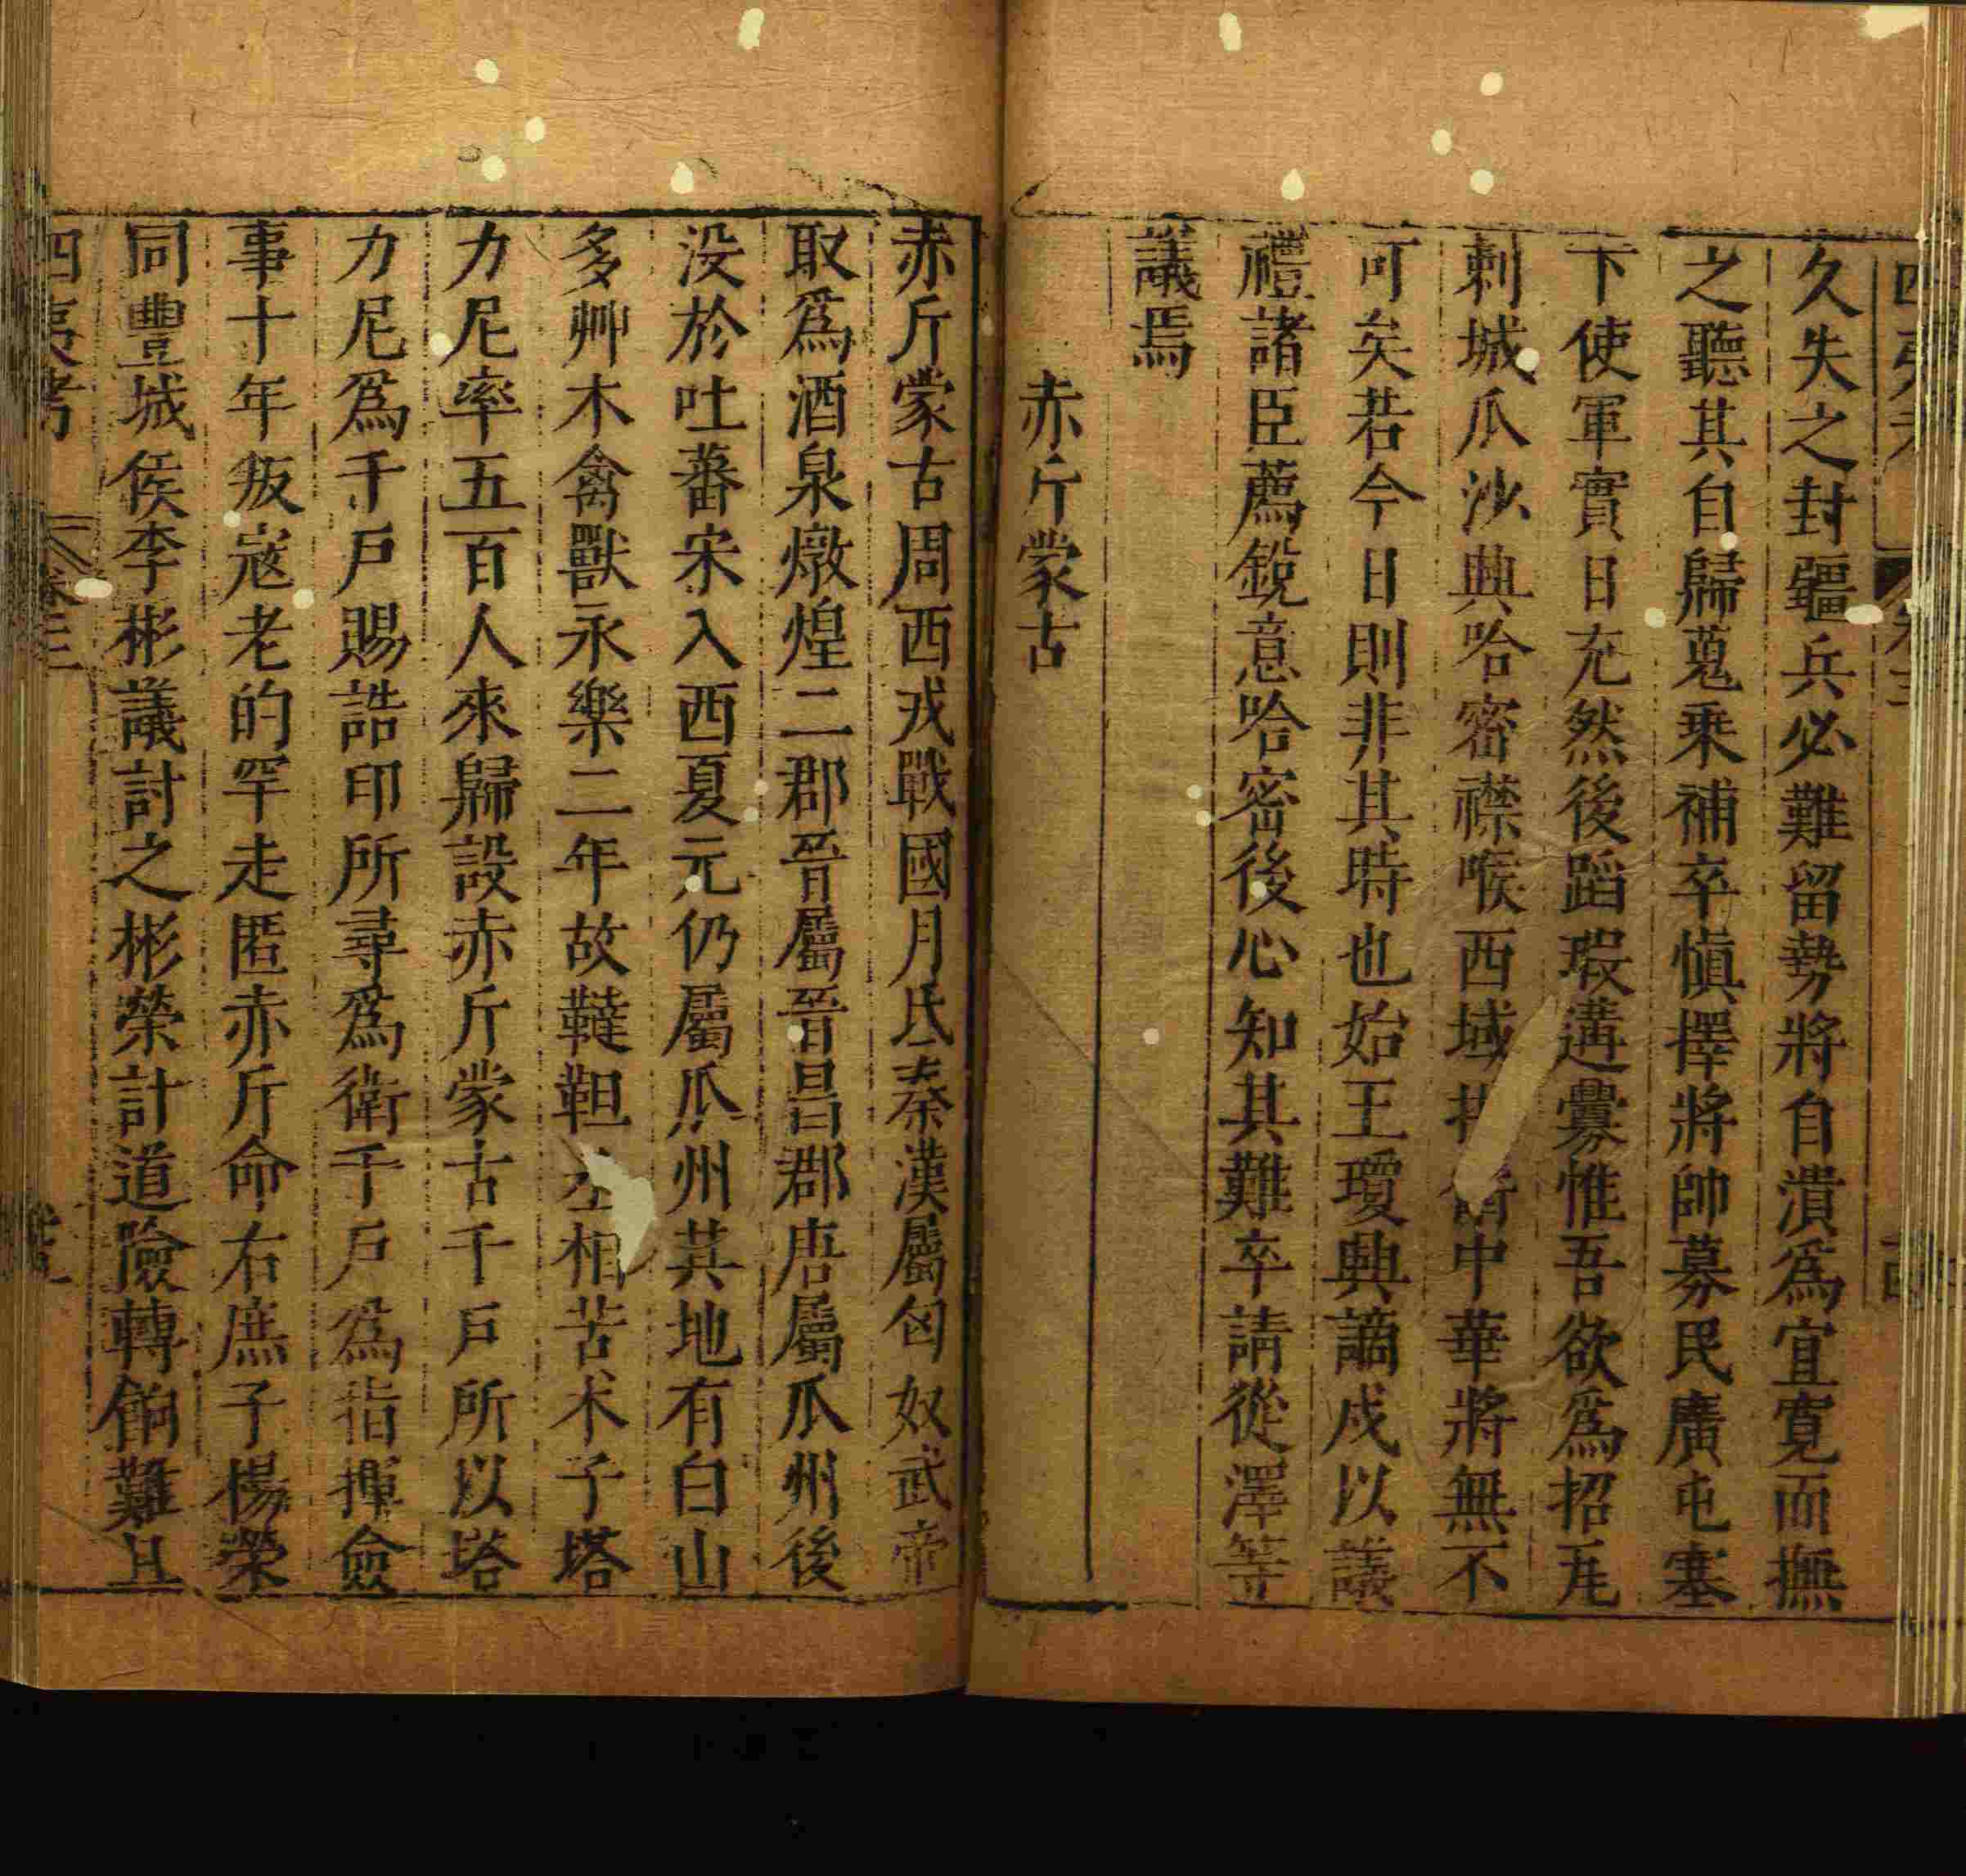 久失之封疆兵必難留勢將自潰爲宜寬而撫
之聽其自歸蒐乗補卒慎擇將帥募民廣屯塞
下使軍實日充然後蹈瑕遘釁惟吾欲爲招𡱈
剌城瓜沙典哈密襟喉西域中華將無不
可矣若今日則非其時也始王瓊典謫戍以議
禮諸臣薦銳意哈密後心知其難卒請從澤等
議焉
赤斤蒙古
赤斤蒙古周西戎戰國月氏秦漢屬匈奴武帝
取爲酒泉燉煌二郡晉屬晉昌郡唐屬瓜州後
没於吐蕃宋入西夏元仍屬瓜州其地有白山
多艸木禽獸永樂二年故韃靼丞相苦术子塔
力尼率五百人來歸設赤斤蒙古千戶所以塔
力尼爲千戶賜誥印所尋爲衛千戶爲指揮僉
事十年叛寇老的罕走匿赤斤命右庶子楊榮
同豐城侯李彬議討之彬榮計道險轉餉難且
四夷考 卷三